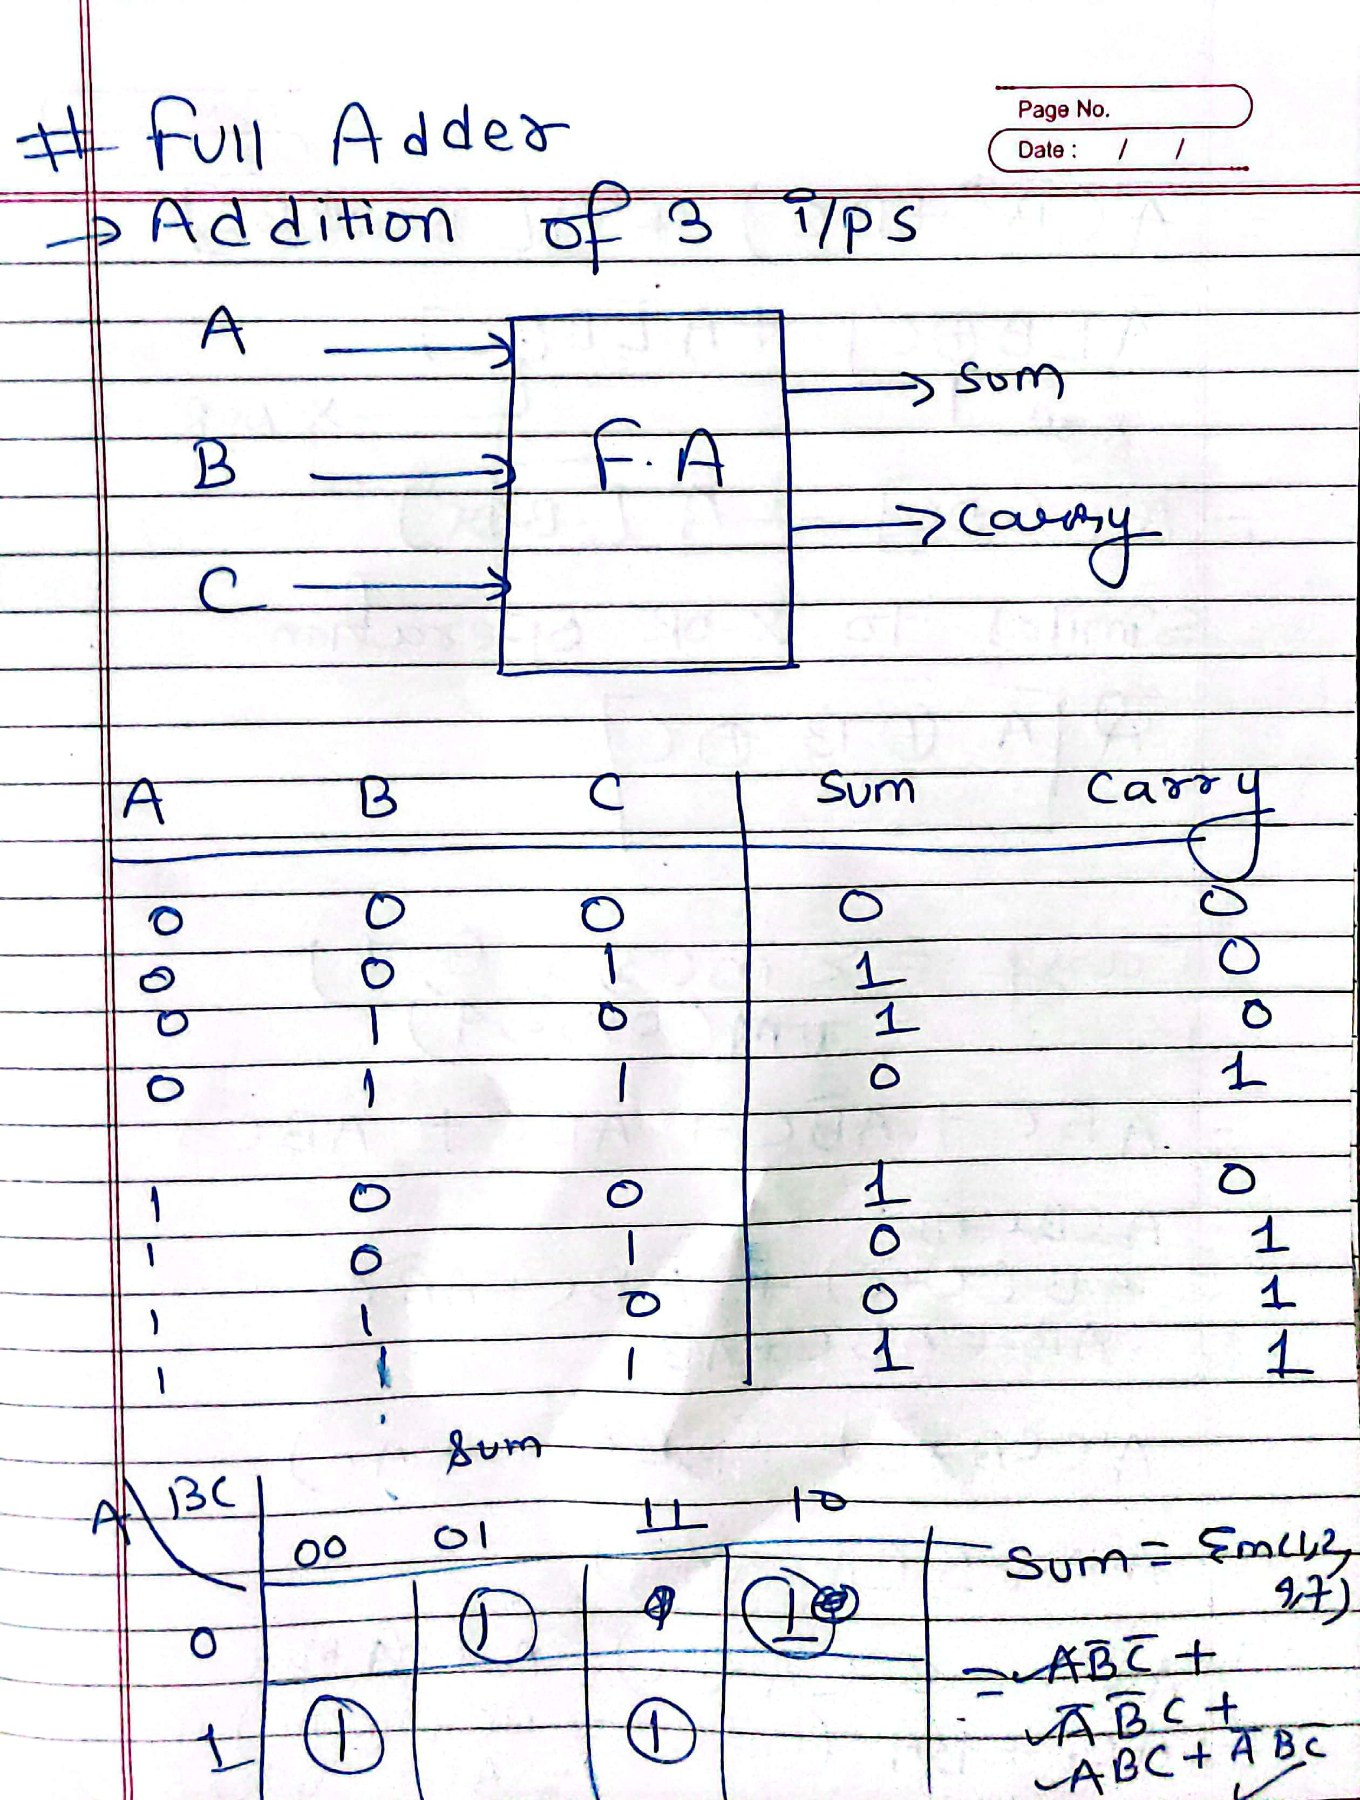 Page No.
Date : / /
# Full Adder
→ Addition of 3 i/ps
A
→ sum
B F.A
→ carry
C
A B C Sum Carry
0 0 0 0 0
0 0 1 1 0
0 1 0 1 0
0 1 1 0 1
1 0 0 1 0
1 0 1 0 1
1 1 0 0 1
1 1 1 1 1
Sum
A BC 00 01 11 10
0 1 1
1 1 1
Sum = Σm(1,2,
4,7)
= AB̅C̅ +
A̅B̅C +
ABC + A̅BC̅